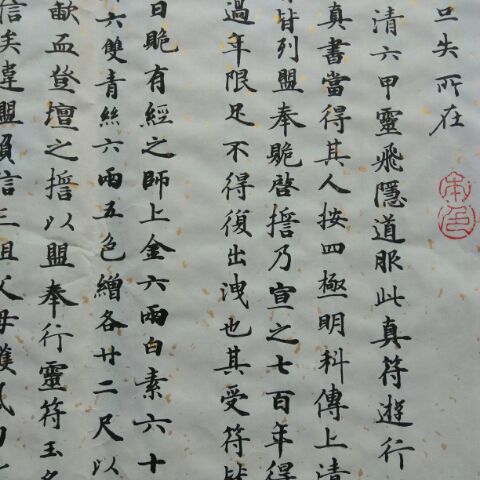 旦失所在
清六甲靈飛隱道服此真符遊行
真書當得其人按四極明科傳上清
皆列盟奉賝啓擔乃宣之七百年得
過年限足不得復出洩也其受符皆
日賝有經之師上金六兩白素六十
六雙青絲六兩五色繒各廿二尺以
歃血登壇之擔以盟奉行靈符玉名
信矣違盟負信三祖父母獲風刀